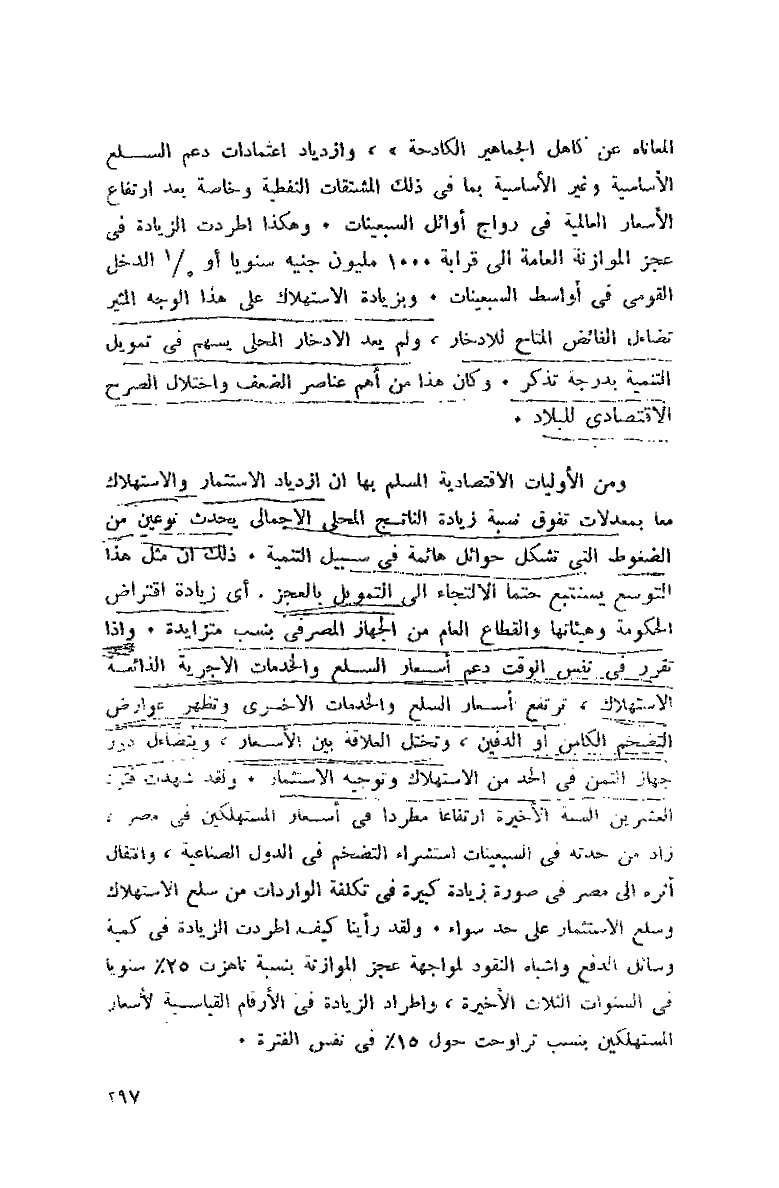 المعاناه عن كاهل الجماهير الكادحة » ، وازدياد اعتمادات دعم الســلع
الأساسية وغير الأساسية بما فى ذلك المشتقات النفطية وخاصة بعد ارتفاع
الأسعار العالمية فى رواج أوائل السبعينات ٠ وهكذا اطردت الزيادة فى
عجز الموازنة العامة الى قرابة ١٠٠٠ مليون جنيه سنويا أو ١/٥ الدخل
القومى فى أواسط السبعينات ٠ وبزيادة الاستهلاك على هذا الوجه المثير
تضاءل الفائض المتاح للادخار ، ولم يعد الادخار المحلى يسهم فى تمويل
التنمية بدرجة تذكر ٠ وكان هذا من أهم عناصر الضعف واختلال الصرح
الاقتصادى للبلاد ٠
ومن الأوليات الاقتصادية المسلم بها ان ازدياد الاستثمار والاستهلاك
معا بمعدلات تفوق نسبة زيادة الناتج المحلى الاجمالى يحدث نوعين من
الضغوط التى تشكل حوائل هائمة فى سبيل التنمية ٠ ذلك ان مثل هذا
التوسع يستتبع حتما الالتجاء الى التمويل بالعجز . أى زيادة اقتراض
الحكومة وهيئاتها والقطاع العام من الجهاز المصرفى بنسب متزايدة ٠ واذا
تقرر فى نفس الوقت دعم أسعار السلع والخدمات الأجرية الذائعة
الاستهلاك ، ترتفع أسعار السلع والخدمات الاخرى وتظهر عوارض
التضخم الكامن أو الدفين ، وتختل العلاقة بين الأسعار ، ويتضاءل دور
جهاز الثمن فى الحد من الاستهلاك وتوجيه الاستثمار ٠ ولقد شهدت فترة
العشرين السنة الأخيرة ارتفاعا مطردا فى أسعار المستهلكين فى مصر ،
زاد من حدته فى السبعينات استشراء التضخم فى الدول الصناعية ، وانتقال
أثره الى مصر فى صورة زيادة كبيرة فى تكلفة الواردات من سلع الاستهلاك
وسلع الاستثمار على حد سواء ٠ ولقد رأينا كيف اطردت الزيادة فى كمية
وسائل الدفع واشباه النقود لمواجهة عجز الموازنة بنسبة ناهزت ٢٥٪ سنويا
فى السنوات الثلاث الأخيرة ، واطراد الزيادة فى الأرقام القياسية لأسعار
المستهلكين بنسب تراوحت حول ١٥٪ فى نفس الفترة ٠
٢٩٧